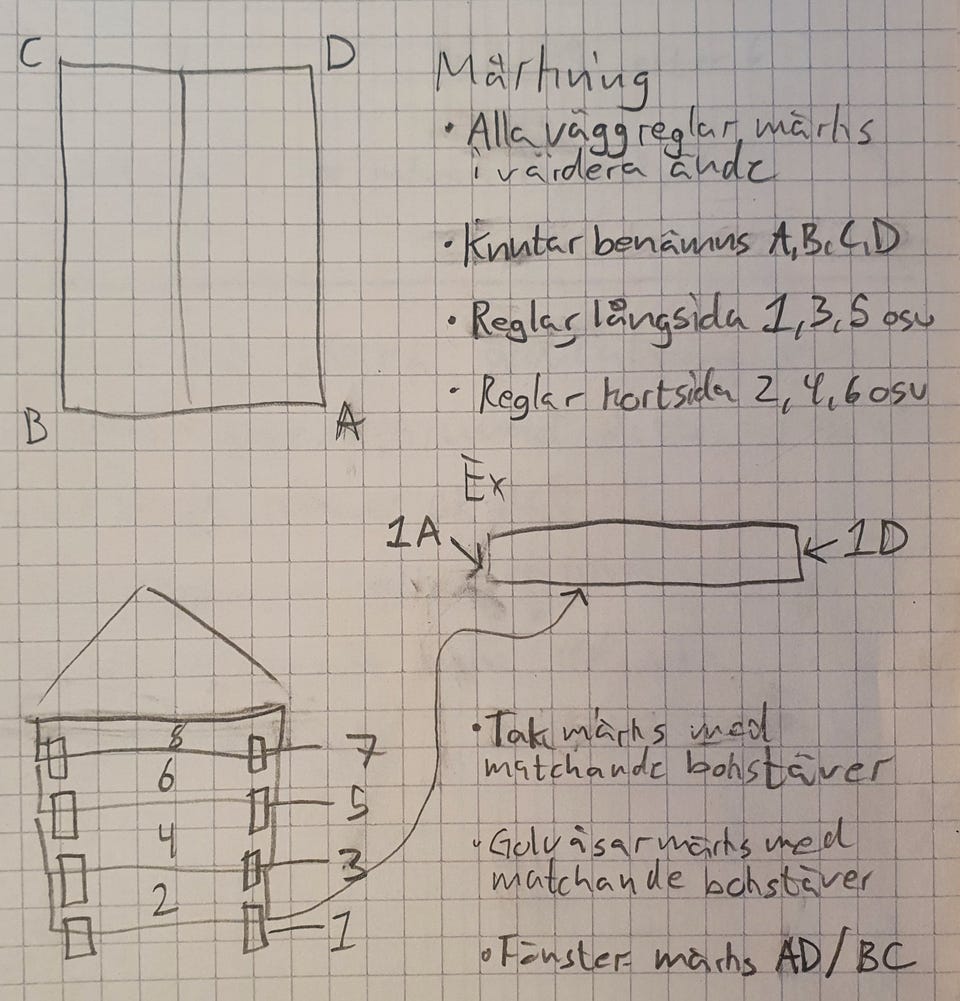 C
D
B
A
Märkning
• Alla väggreglar märks
i vardera ände
• Knutar benämns A, B, C, D
• Reglar långsida 1, 3, 5 osv
• Reglar kortsida 2, 4, 6 osv
Ex
1A
1D
8
7
6
5
4
3
2
1
• Tak märks med
matchande bokstäver
• Golvåsar märks med
matchande bokstäver
• Fönster märks AD/BC